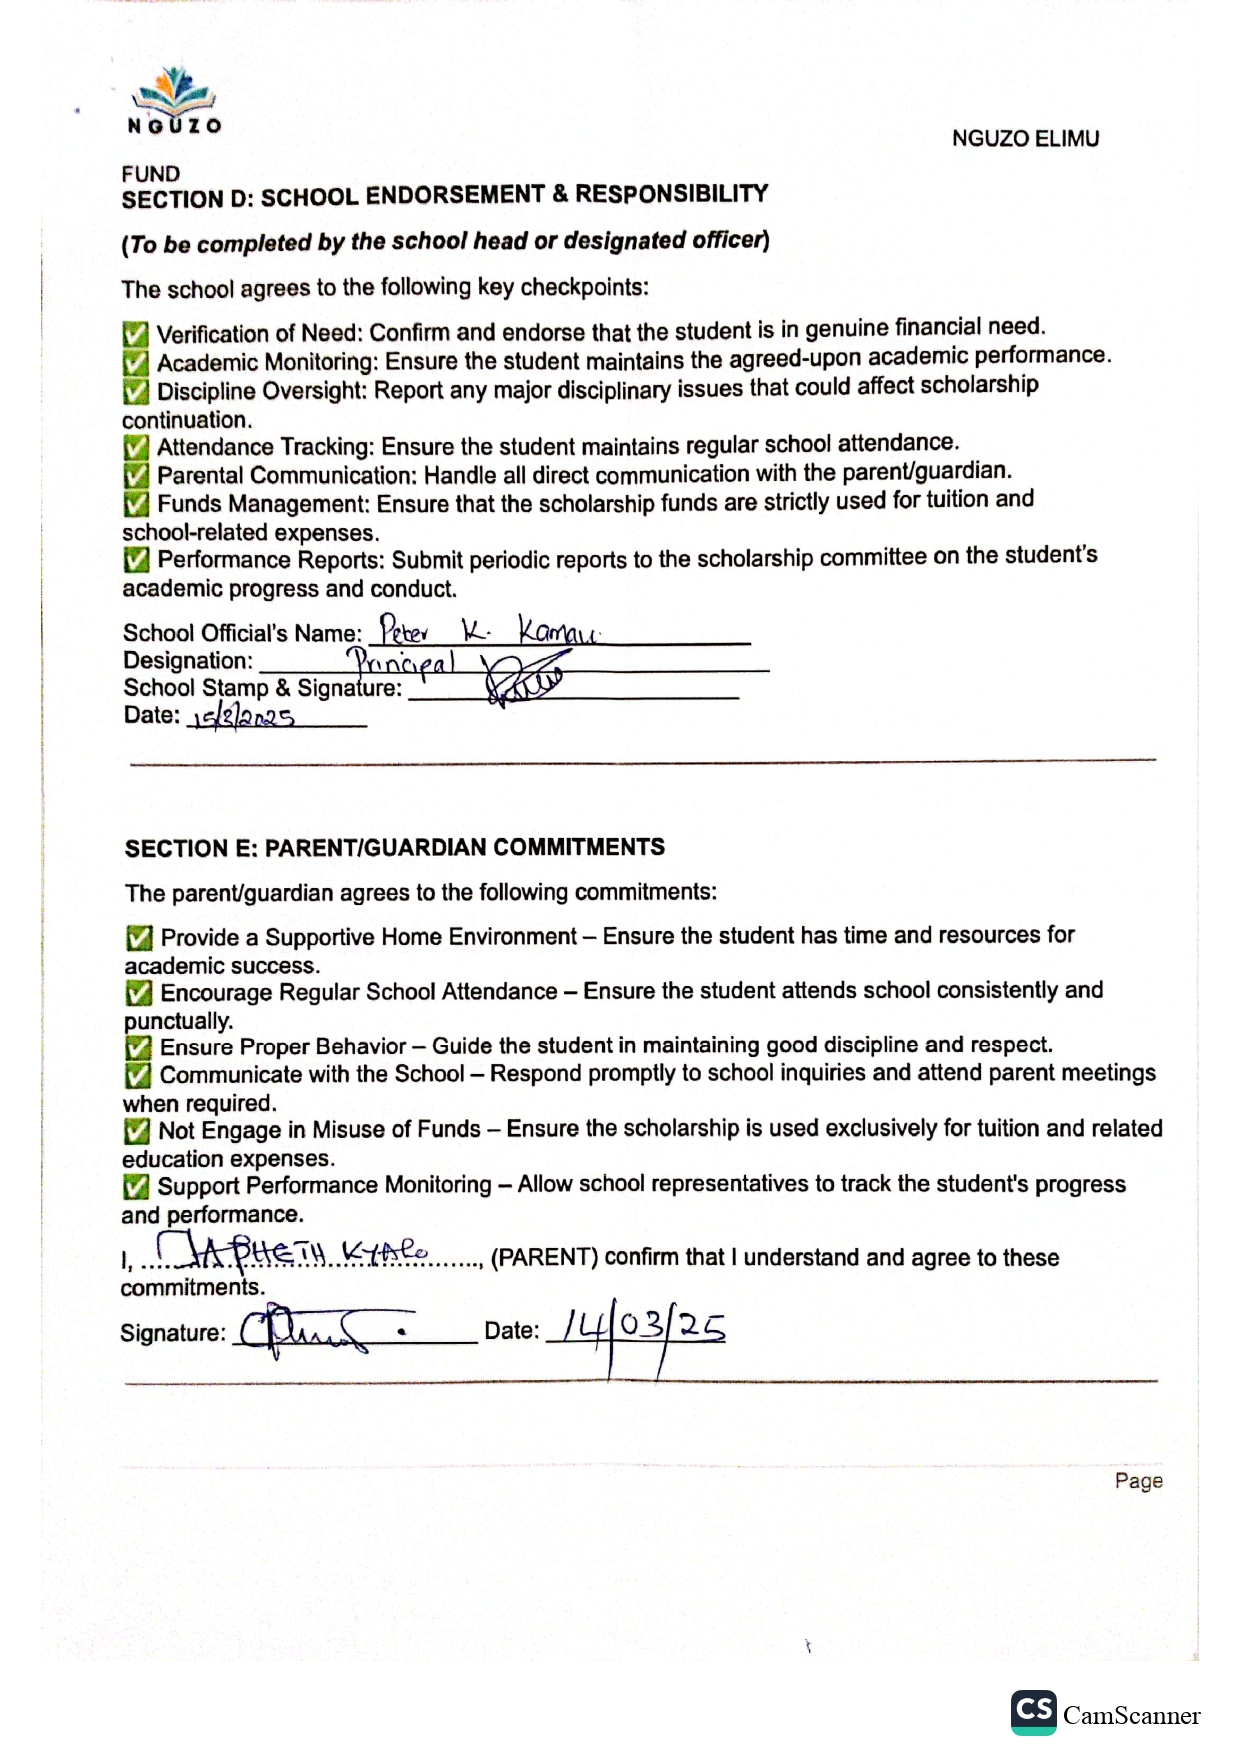 NGUZO
NGUZO ELIMU
FUND
SECTION D: SCHOOL ENDORSEMENT & RESPONSIBILITY
(To be completed by the school head or designated officer)
The school agrees to the following key checkpoints:
✅ Verification of Need: Confirm and endorse that the student is in genuine financial need.
✅ Academic Monitoring: Ensure the student maintains the agreed-upon academic performance.
✅ Discipline Oversight: Report any major disciplinary issues that could affect scholarship
continuation.
✅ Attendance Tracking: Ensure the student maintains regular school attendance.
✅ Parental Communication: Handle all direct communication with the parent/guardian.
✅ Funds Management: Ensure that the scholarship funds are strictly used for tuition and
school-related expenses.
✅ Performance Reports: Submit periodic reports to the scholarship committee on the student's
academic progress and conduct.
School Official's Name: Peter K. Kamau
Designation: Principal
School Stamp & Signature:
Date: 15/3/2025
SECTION E: PARENT/GUARDIAN COMMITMENTS
The parent/guardian agrees to the following commitments:
✅ Provide a Supportive Home Environment – Ensure the student has time and resources for
academic success.
✅ Encourage Regular School Attendance – Ensure the student attends school consistently and
punctually.
✅ Ensure Proper Behavior – Guide the student in maintaining good discipline and respect.
✅ Communicate with the School – Respond promptly to school inquiries and attend parent meetings
when required.
✅ Not Engage in Misuse of Funds – Ensure the scholarship is used exclusively for tuition and related
education expenses.
✅ Support Performance Monitoring – Allow school representatives to track the student's progress
and performance.
I, JAPHETH KYALO, (PARENT) confirm that I understand and agree to these
commitments.
Signature: Date: 14/03/25
Page
CS CamScanner